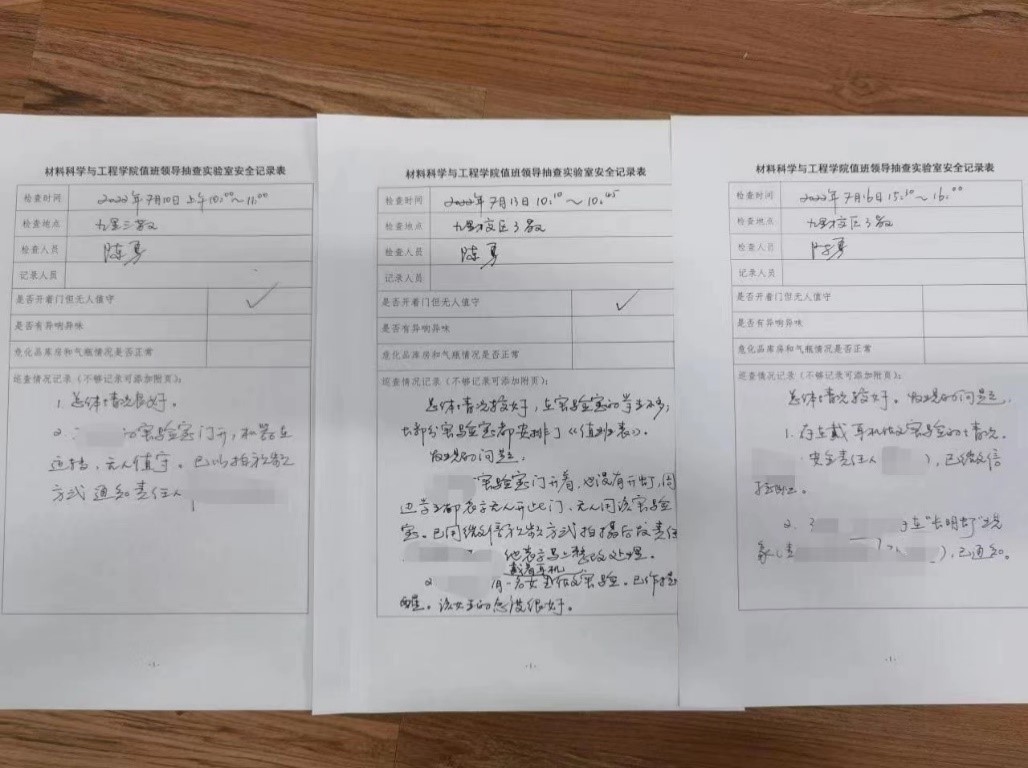 材料科学与工程学院值班领导抽查实验室安全记录表
检查时间 2022年7月10日上午10:00~11:00
检查地点 九里三教
检查人员 陈勇
记录人员
是否开着门但无人值守 ✓
是否有异响异味
危化品库房和气瓶情况是否正常
巡查情况记录(不够记录可添加附页):
1. 总体情况很好。
2. 的实验室门开,机器在
运转,无人值守。已以拍和
方式通知责任人
-1-
材料科学与工程学院值班领导抽查实验室安全记录表
检查时间 2022年7月13日10:10~10:45
检查地点 九里校区3教
检查人员 陈勇
记录人员
是否开着门但无人值守 ✓
是否有异响异味
危化品库房和气瓶情况是否正常
巡查情况记录(不够记录可添加附页):
总体情况较好,在实验室的学生不多,
大部分实验室都安排了《值班表》。
发现的问题:
实验室门开着,也没有开灯,周
边学生都表示无人开此门、无人用该实验
室。已用微信和方式拍摄后发责任
他表示马上整改处理。
戴着耳机
2 有一名女生在做实验。已作提
醒。该女生的态度很好。
-1-
材料科学与工程学院值班领导抽查实验室安全记录表
检查时间 2022年7月16日15:30~16:00
检查地点 九里校区3教
检查人员 陈勇
记录人员
是否开着门但无人值守
是否有异响异味
危化品库房和气瓶情况是否正常
巡查情况记录(不够记录可添加附页):
总体情况较好。发现的问题:
1. 存在戴耳机做实验的情况。
安全责任人 ),已微信
提醒。
2. 存在"长明灯"现
象( ),已通知。
-1-